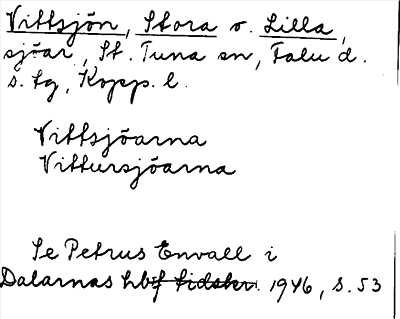 Vittsjön, Stora o. Lilla,
sjöar, St. Tuna sn, Falu d.
s. tg, Kopp. l.
Vittsjöarna
Vittursjöarna
Se Petrus Envall i
Dalarnas hbf tidskr. 1946, s. 53